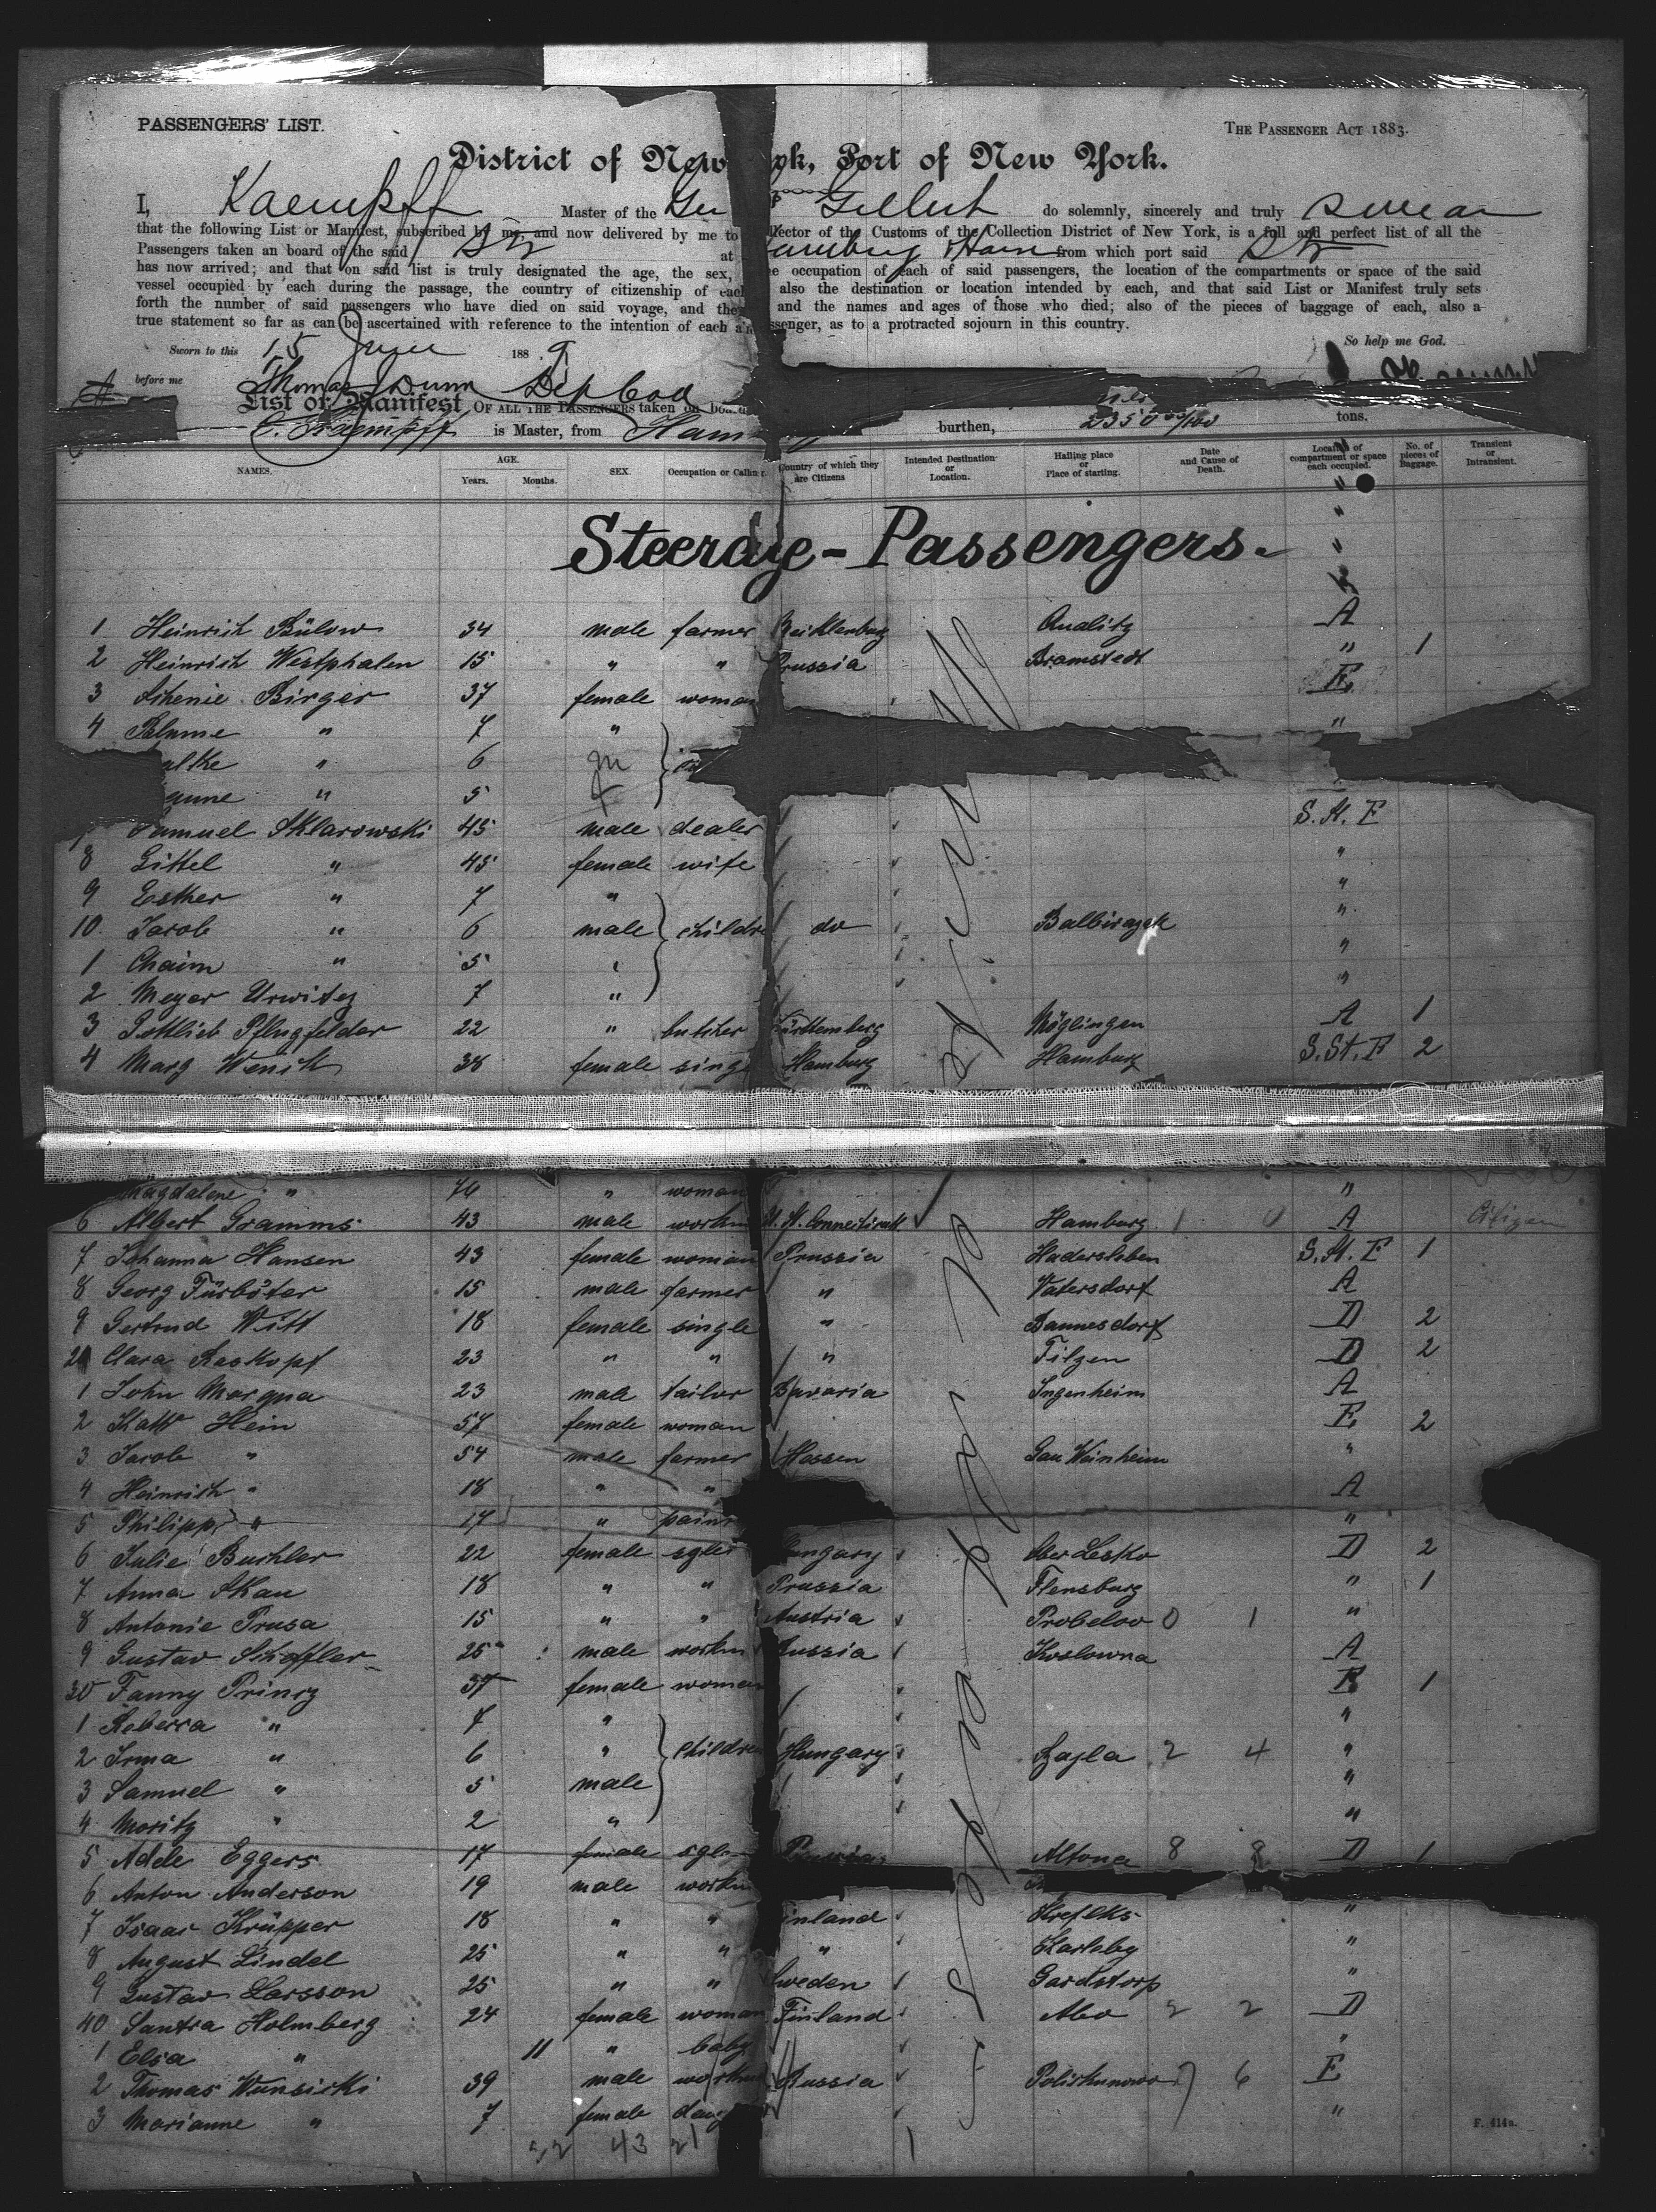 PASSENGERS' LIST.
THE PASSENGER ACT 1883.
District of New York, Port of New York.
I, Kaempff Master of the Ger Gellert do solemnly, sincerely and truly swear
that the following List or Manifest, subscribed by me, and now delivered by me to llector of the Customs of the Collection District of New York, is a full and perfect list of all the
Passengers taken an board of the said Str at amburg from which port said Str
has now arrived; and that on said list is truly designated the age, the sex, e occupation of each of said passengers, the location of the compartments or space of the said
vessel occupied by each during the passage, the country of citizenship of each also the destination or location intended by each, and that said List or Manifest truly sets
forth the number of said passengers who have died on said voyage, and the and the names and ages of those who died; also of the pieces of baggage of each, also a
true statement so far as can be ascertained with reference to the intention of each ssenger, as to a protracted sojourn in this country.
Sworn to this 15 June 1889 So help me God.
before me Thomas J Dunn Dep
List or Manifest OF ALL THE PASSENGERS taken on boa
C. Kaempff is Master, from Ham burthen, 2350 00/100 tons.
NAMES. AGE. Years. Months. SEX. Occupation or Calling. Country of which they are Citizens Intended Destination or Location. Hailing place or Place of starting. Date and Cause of Death. Location of compartment or space each occupied. No. of pieces of Baggage. Transient or Intransient.
Steerage - Passengers.
1 Heinrich Bülow 34 male farmer Qualitz A
2 Heinrich Westphalen 15 " " Prussia Bramstedt " 1
3 Birger 37 female woman E
4 Blume " 7 " "
alke " 6 m
anne " 5 f
Samuel Sklarowski 45 male dealer S. St. E
8 Gittel " 45 female wife "
9 Esther " 7 " "
10 Jacob " 6 male childre do "
1 Chaim " 5 "
2 Meyer Urwitz 7 " "
3 Gottlieb Pflugfelder 22 " butcher Württemberg Möglingen A 1
4 Marg Wenich 38 female singl Hamburg Hamburg S. St. E 2
Magdalene " 76 " woman "
6 Albert Gramms 43 male workm U. St. Connecticutt Hamburg 1 0 A Citizen
7 Johanna Hansen 43 female woman Prussia Hadersleben S. St. E 1
8 Georg Fürböter 15 male farmer " Vatersdorf A
9 Gertrud Witt 18 female single " Bannesdorf D 2
20 Clara Raskopf 23 " " " Filzen D 2
1 John Marqua 23 male tailor Bavaria Ingenheim A
2 Kath Hein 57 female woman E 2
3 Jacob " 54 male farmer Hessen Gau Weinheim "
4 Heinrich " 18 " " A
5 Philipp " 17 " pain "
6 Julie Buchler 22 female sgle Hungary Ober Lesko D 2
7 Anna Skau 18 " " Prussia Flensburg " 1
8 Antonie Prusa 15 " " Austria Probelov 0 1 "
9 Gustav Scheffler 25 male workm Russia Koslowna A
30 Fanny Princz 37 female woman E 1
1 Rebecca " 7 " "
2 Irma " 6 " childre Hungary Szajla 2 4 "
3 Samuel " 5 male "
4 Moritz " 2 " "
5 Adele Eggers 17 female sgle Prussia Altona 8 8 D 1
6 Anton Anderson 19 male workm
7 Isaac Krüpper 18 " " inland "
8 August Lindel 25 " " " Karleby "
9 Gustav Larsson 25 " " Sweden Gardstorp "
40 Santra Holmberg 24 female woman Finland Abo 2 2 D
1 Elsa " 11 " baby "
2 Thomas Wunsicki 39 male workm Russia 7 6 E
3 Marianne " 7 female daug "
43 21
F. 414a.